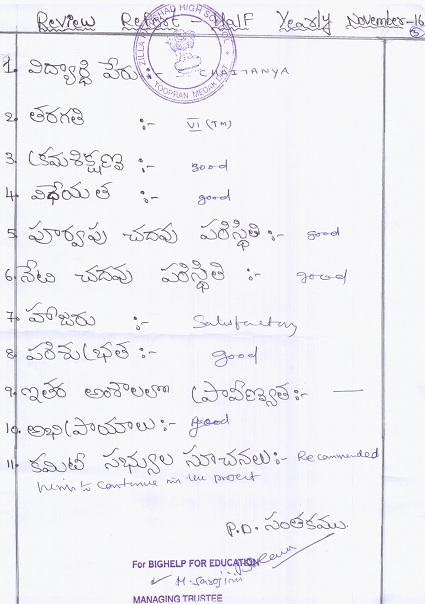 Review Report Half Yearly November-16
5
ZILLA PARISHAD HIGH SCHOOL
TOOPRAN MEDAK
1. విద్యార్థి పేరు :- S. CHAITANYA
2. తరగతి :- VI (TM)
3. క్రమశిక్షణ :- good
4. విధేయత :- good
5. పూర్వపు చదువు పరిస్థితి :- good
6. నేటి చదువు పరిస్థితి :- good
7. హాజరు :- Satisfactory
8. పరిశుభ్రత :- good
9. ఇతర అంశాలలో ప్రావీణ్యత :- —
10. అభిప్రాయాలు :- good
11. కమిటీ సభ్యుల సూచనలు :- Recommended
him to continue in the project
P.D. సంతకము.
For BIGHELP FOR EDUCATION
M. Sarojini
MANAGING TRUSTEE